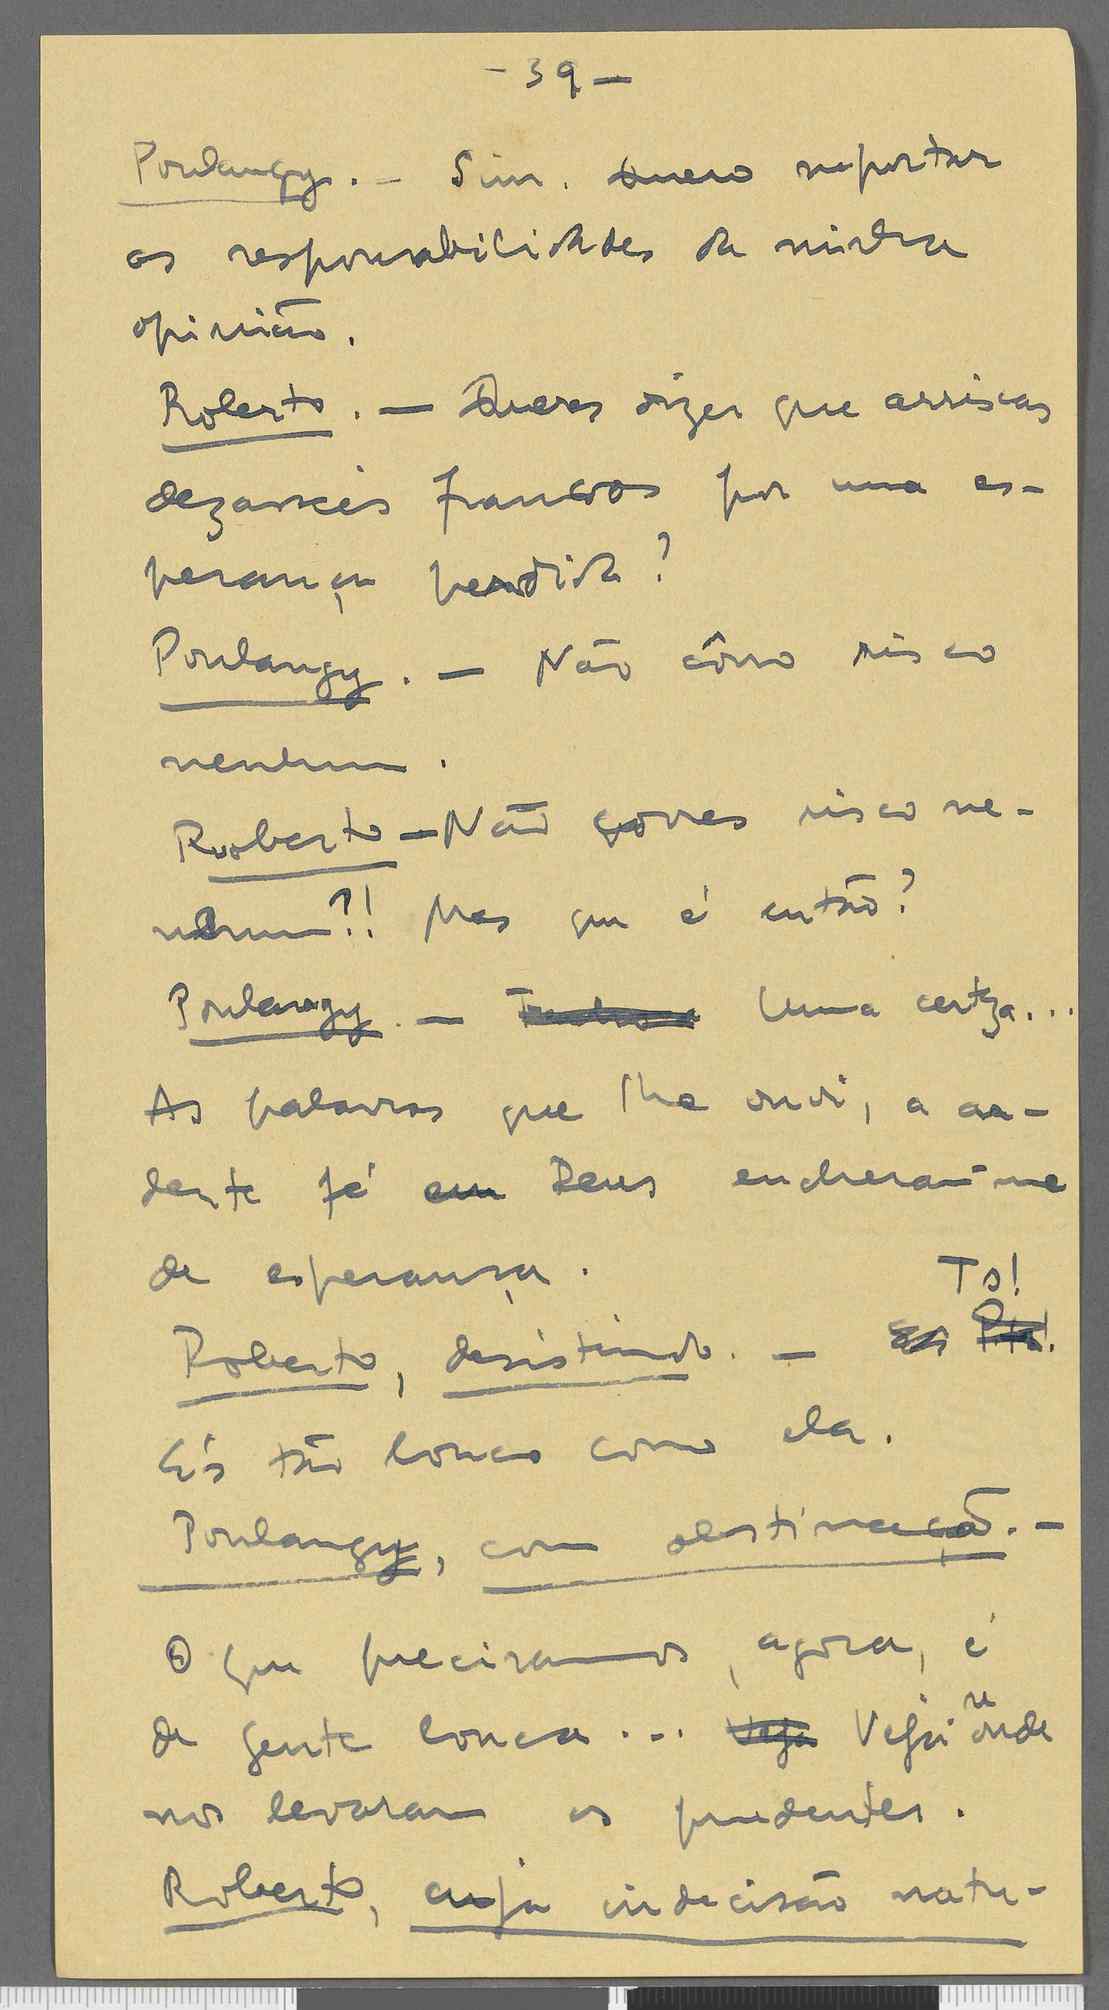 - 39 -
Poulangy. - Sim. Quero suportar
as responsabilidades da minha
opinião.
Roberto. - Queres dizer que arriscas
dezasseis francos por uma es-
perança perdida?
Poulangy. - Não côrro risco
nenhum.
Roberto - Não corres risco ne-
nhum?! Mas que é então?
Poulangy. - Tenho a Uma certeza...
As palavras que lhe ouvi, a ar-
dente fé em Deus encheram-me
de esperança.
To!
Roberto, desistindo. -
És tão louco como ela.
Poulangy, com obstinação. -
O que precisamos, agora, é
de gente louca... Veja Vejam onde
nos levaram os prudentes.
Roberto, cuja indecisão natu-